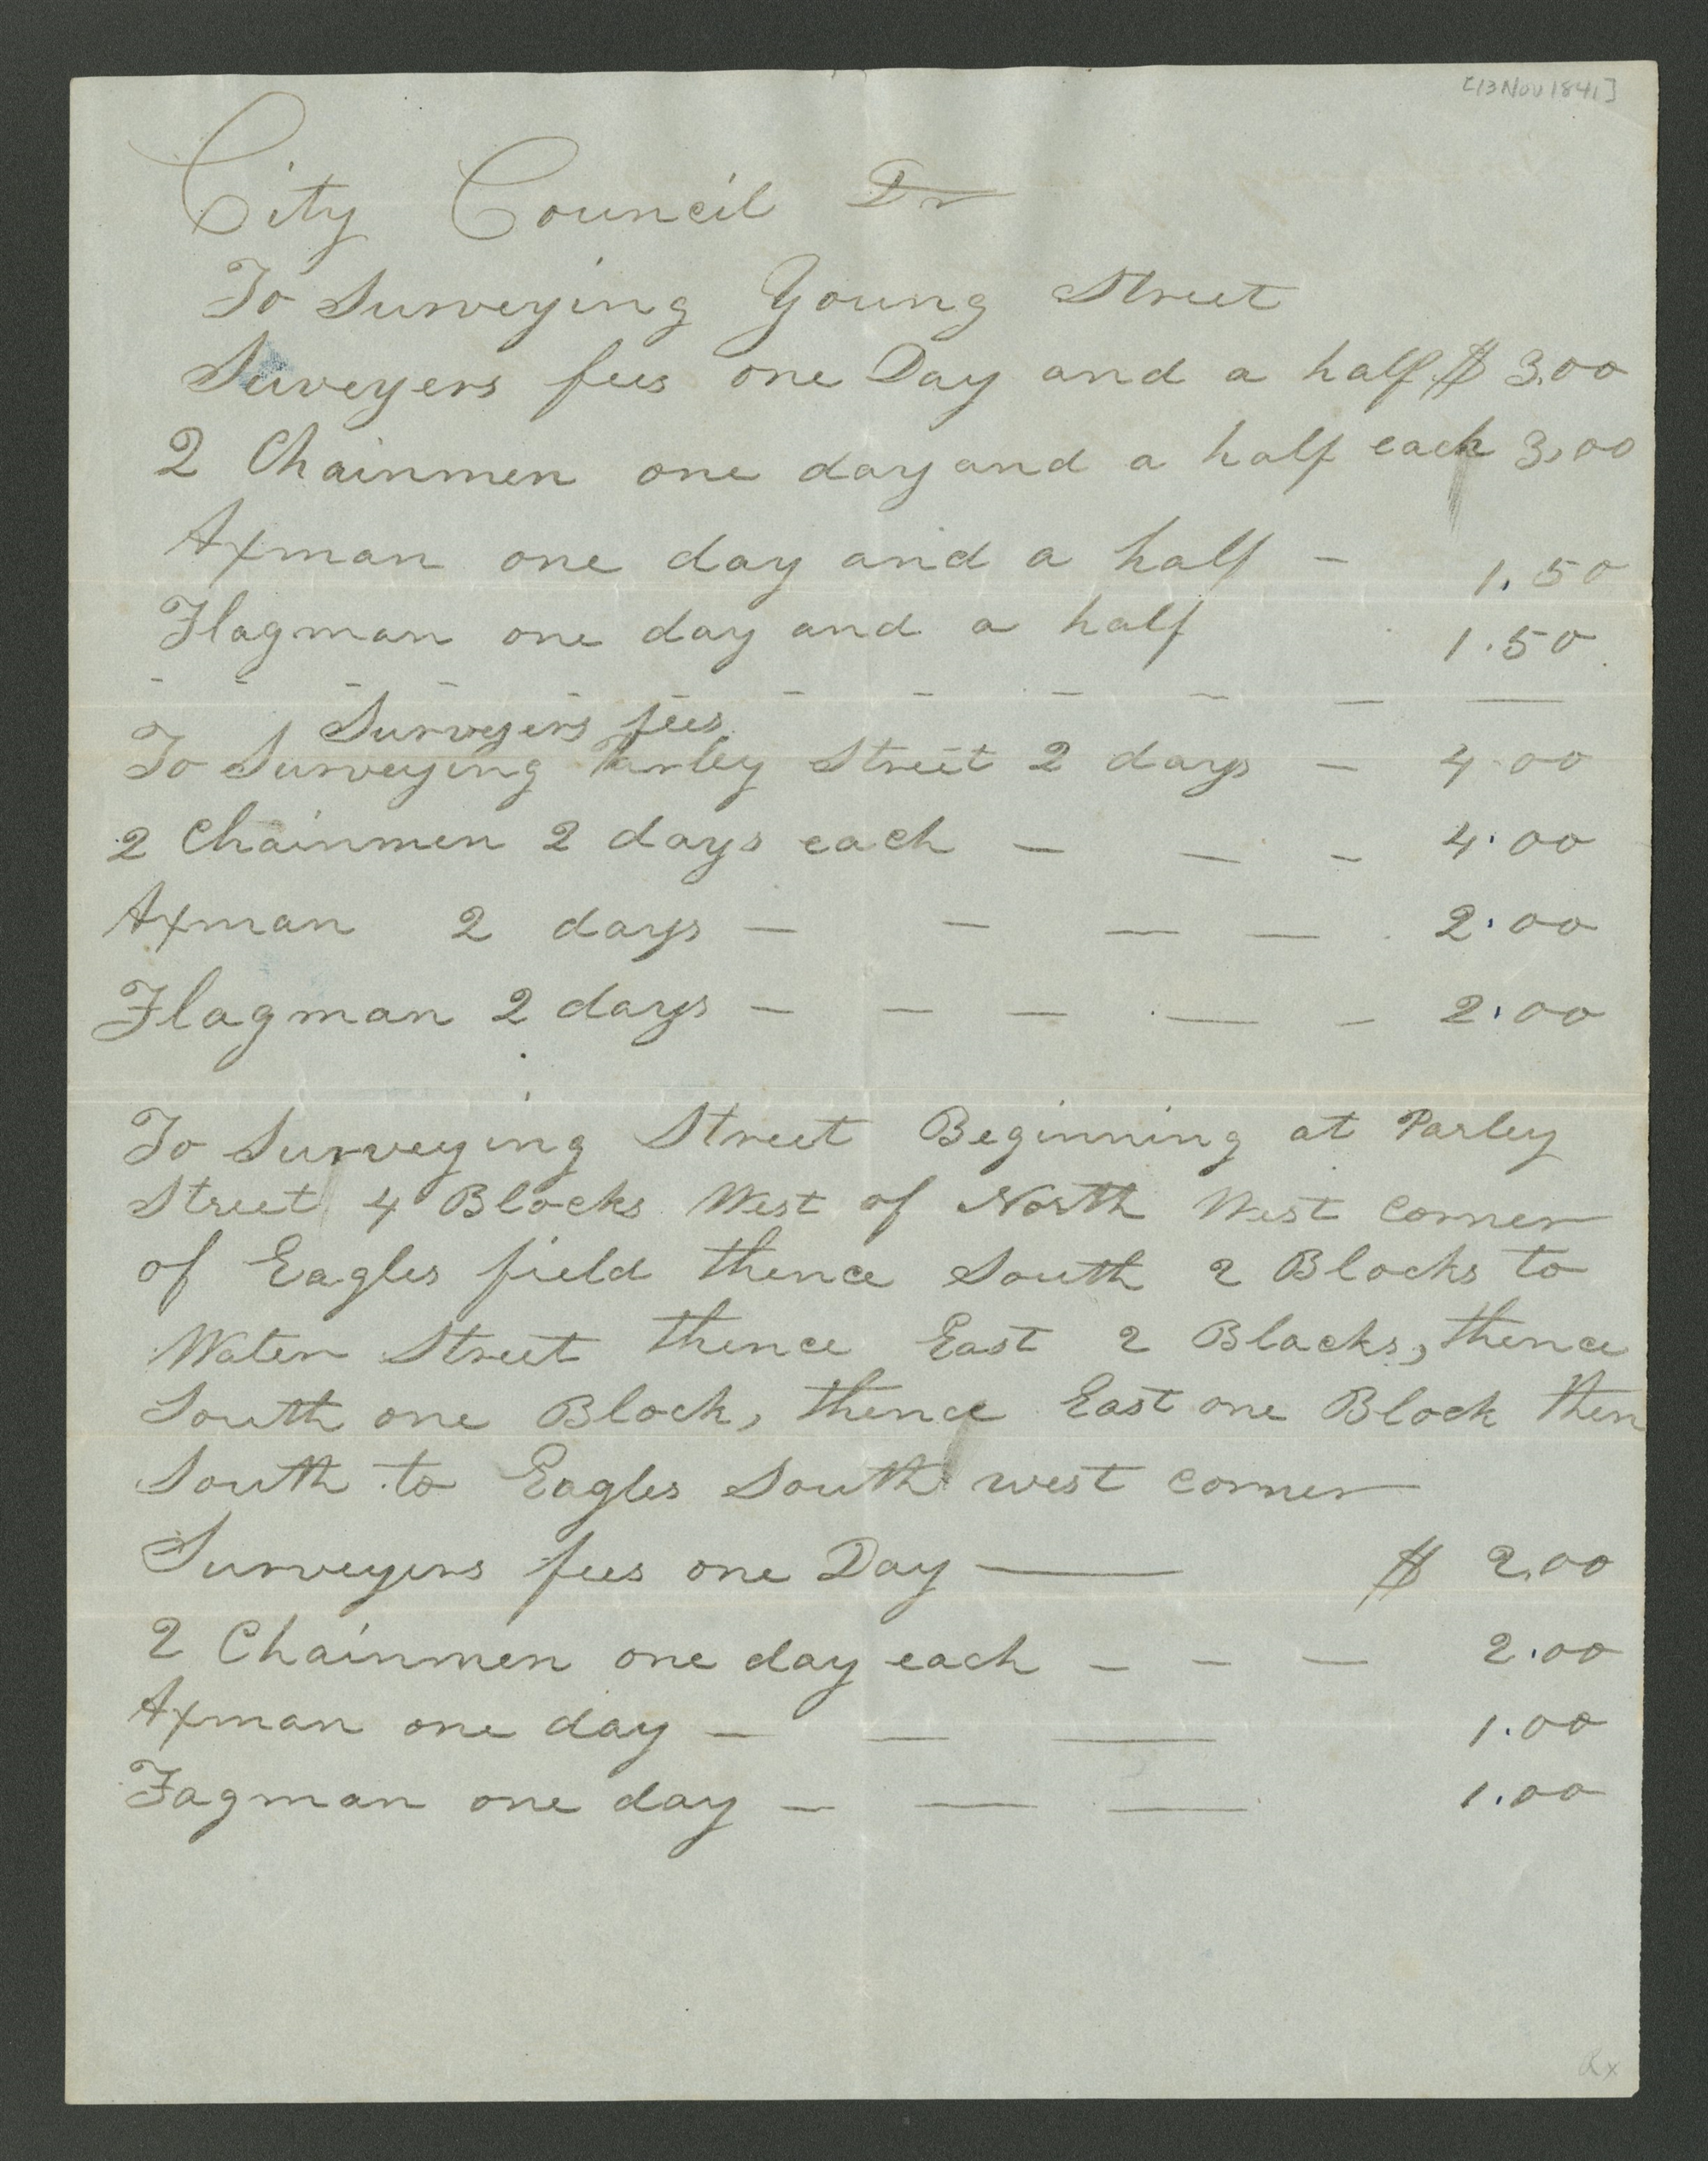 [13 Nov 1841]
City Council Dr
To Surveying Young Street
Suveyers fees one Day and a half $ 3.00
2 Chainmen one day and a half each 3.00
Axman one day and a half - 1.50
Flagman one day and a half 1.50
- - - - - - - - - - - - -
Surveyers fees
To Surveying Parley Street 2 days - 4.00
2 Chainmen 2 days each - - - 4.00
Axman 2 days - - - - 2.00
Flagman 2 days - - - - - 2.00
To Surveying Street Beginning at Parley
Street 4 Blocks West of North West corner
of Eagles field thence South 2 Blocks to
Water Street thence East 2 Blacks, thence
South one Block, thence East one Block then
South to Eagles South west corner
Surveyers fees one Day - $ 2.00
2 Chainmen one day each - - - 2.00
Axman one day - - - 1.00
Fagman one day - - - 1.00